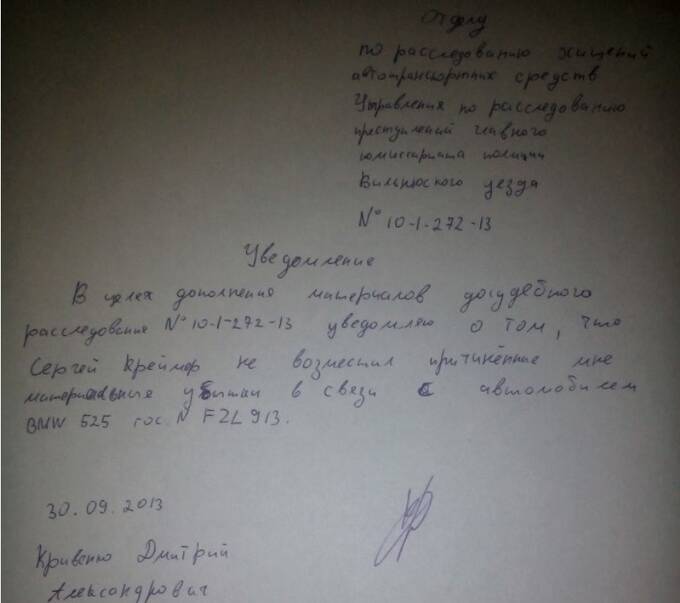 Отделу
по расследованию хищений
автотранспортных средств
Управления по расследованию
преступлений главного
комиссариата полиции
Вильнюского уезда
N° 10-1-272-13
Уведомление
В целях дополнения материалов досудебного
расследования N° 10-1-272-13 уведомляю о том, что
Сергей Креймер не возместил причинённые мне
материальные убытки в связи с автомобилем
BMW 525 гос. N FZL 913.
30.09.2013
Кривенко Дмитрий
Александрович